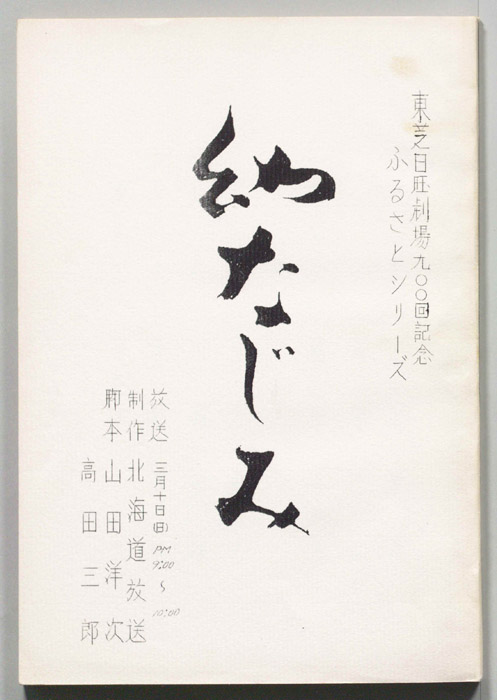 東芝日曜劇場九〇〇回記念
ふるさとシリーズ
幼なじみ
放送 三月十日(日) PM 9:00 〜 10:00
制作 北海道放送
脚本 山田洋次
高田三郎